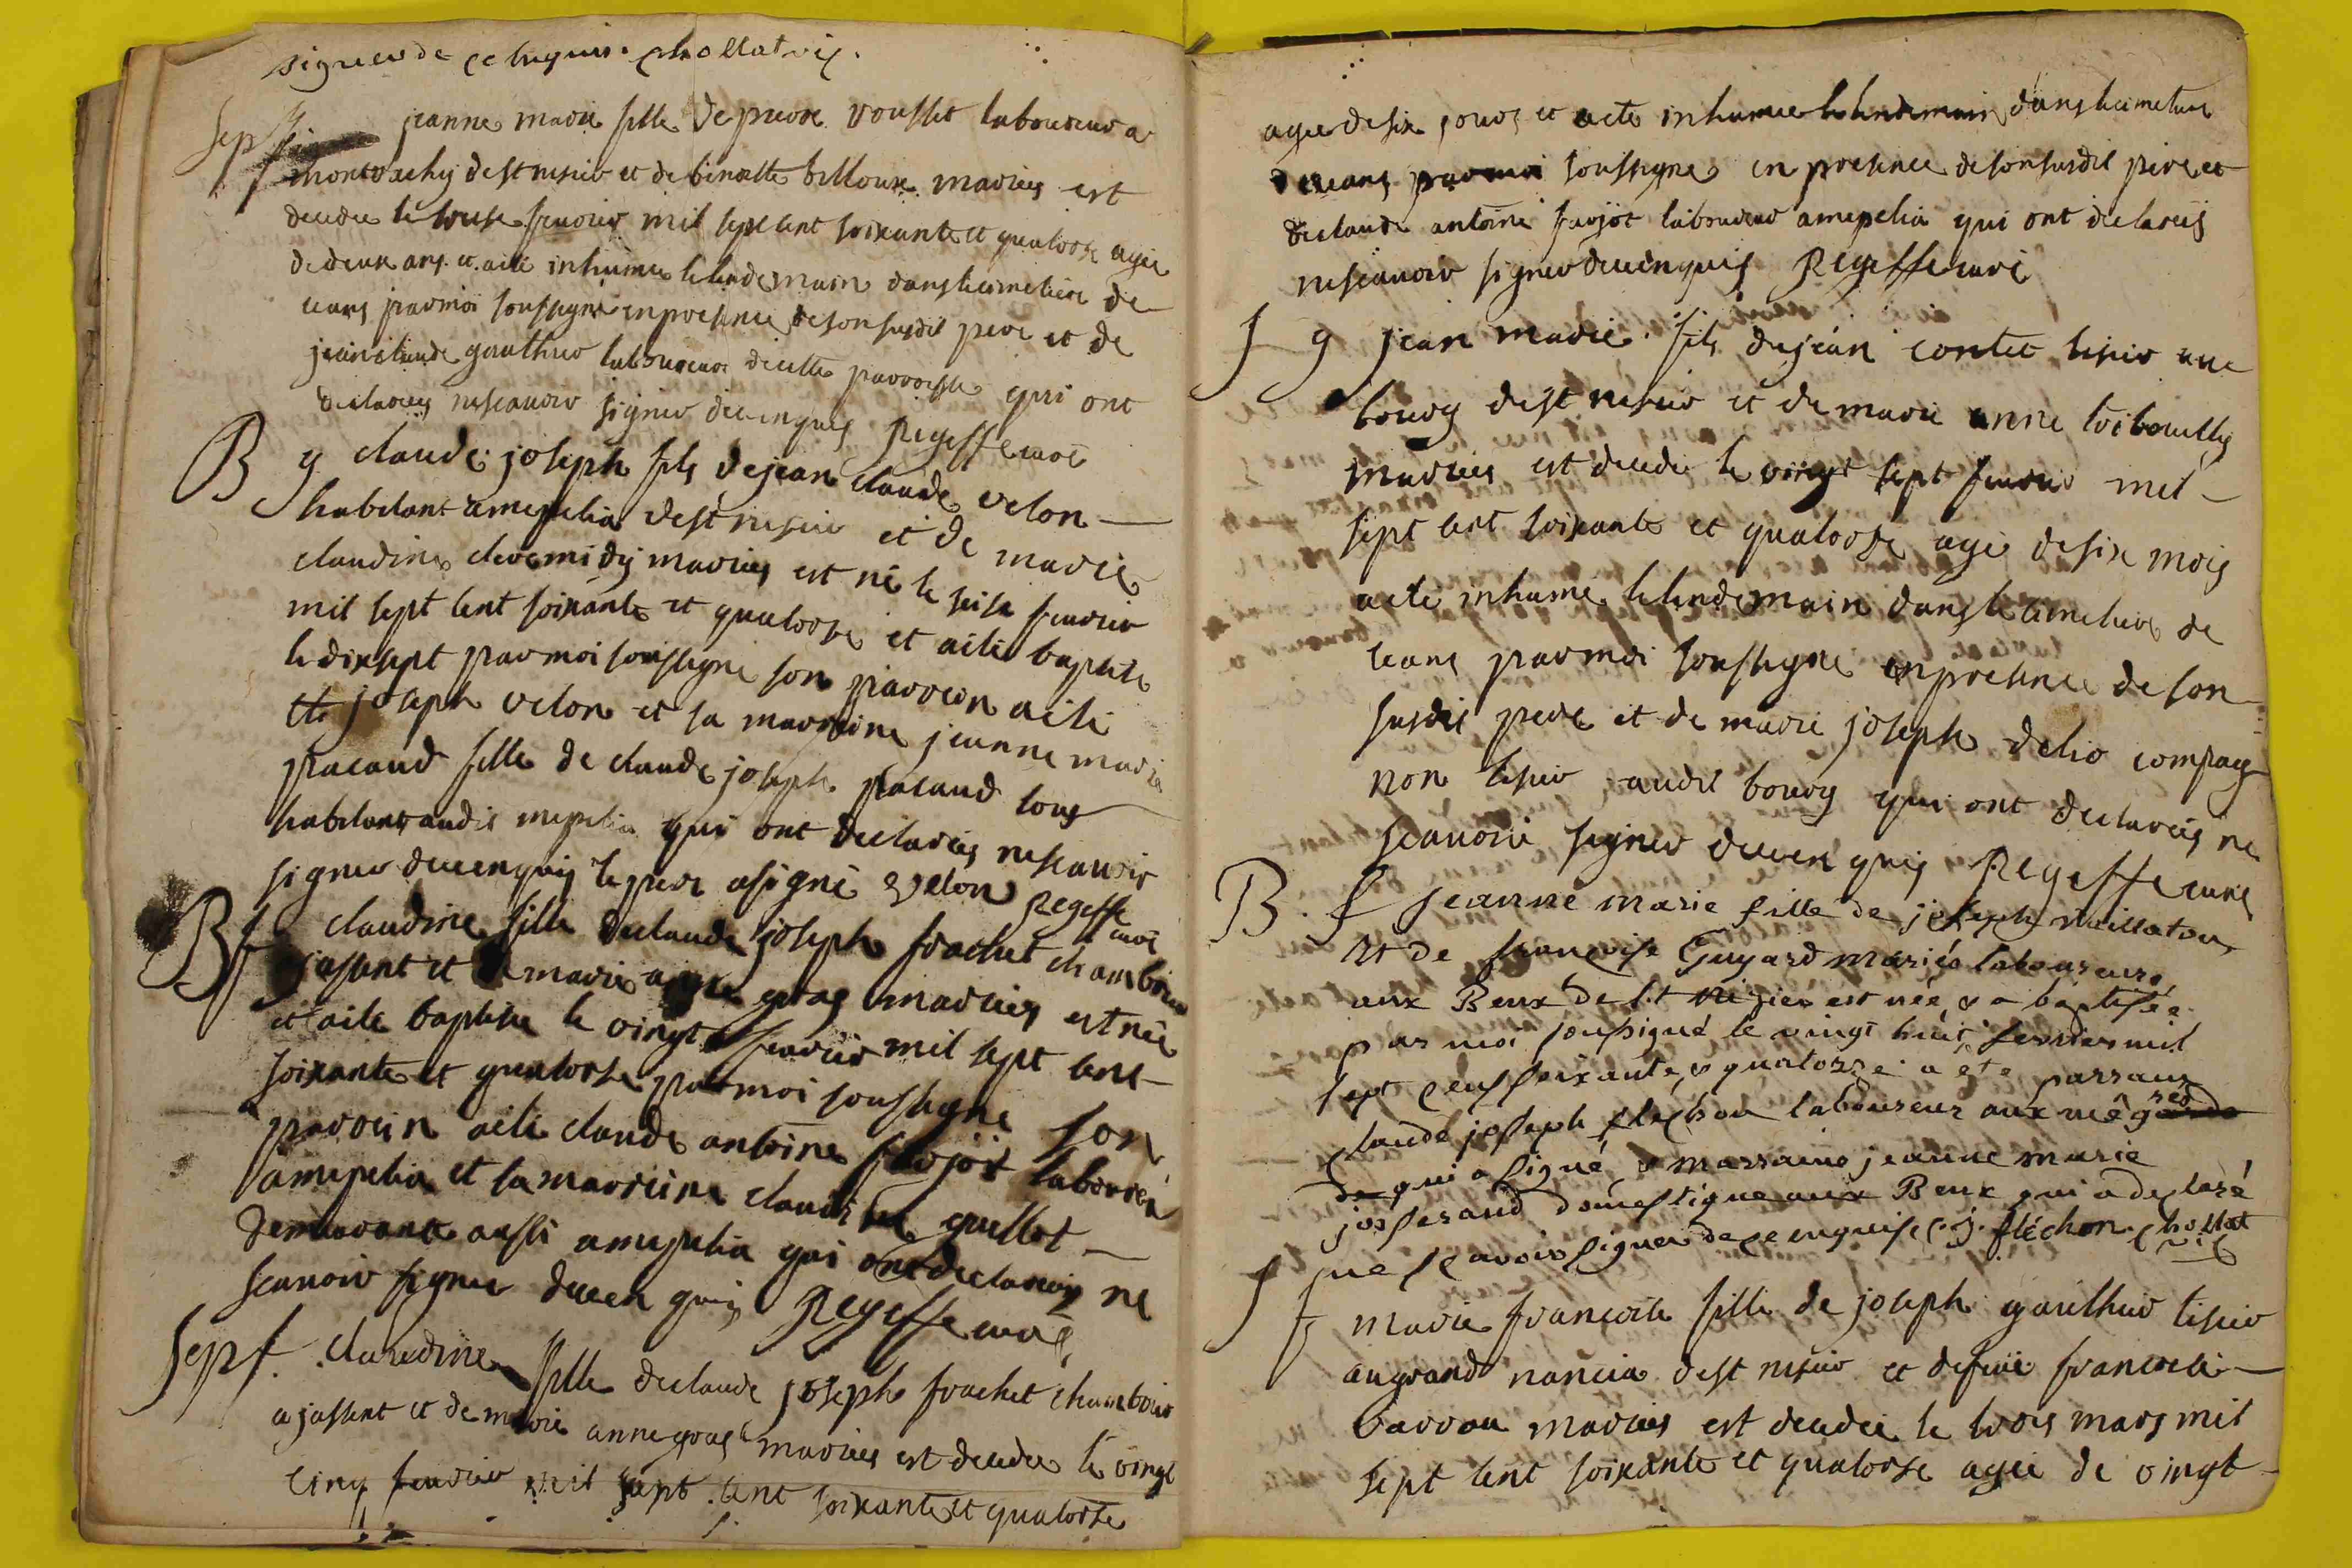 signer de ce enquis. chollat vic.
Sep f jeanne marie fille de pierre rousset laboureur a
montrachy de st nisier et de benoitte billoux mariés est
decedee le treise fevrier mil sept cent soixante et quatorse agee
de deux ans et a eté inhumee le lendemain dans le cimetiere de
ceans par moi soussigné en presence de son susdit pere et de
jean claude gauthier laboureur de cette parroisse qui ont
declarés ne scauoir signer de ce enquis Regeffe curé
B g claude joseph fils de jean claude velon
habitant a mepelia de st nisier et de marie
claudine cheremidy mariés est né le seise feurier
mil sept cent soixante et quatorse et a eté baptisé
le dixsept par moi soussigné son parrein a eté
joseph velon et sa marreine jeanne marie
pacaud fille de claude joseph pacaud tous
habitants audit mepelia qui ont declarés ne scauoir
signer de ce enquis le pere a signé velon Regeffe curé
B f claudine fille de claude joseph frachet chambrier
a jassent et de marie anne gras mariés est née
et a eté baptisee le vingt feurier mil sept cent
soixante et quatorse par moi soussigné son
parrein a eté claude antoine farjot laboureur
a mepelia et sa marreine claudine guillot
demeurante aussi a mepelia qui ont declarés ne
scauoir signer de ce en quis Regeffe curé
Sep f. claudine fille de claude joseph frachet chambrier
a jassent et de marie anne gras mariés est decedee le vingt
cinq feurier mil sept cent soixante et quatorse
agee de six jours et a eté inhumee le lendemain dans le cimetiere
de ceans par moi soussigné en presence de son susdit pere et
de claude antoine farjot laboureur a mepelia qui ont declarés
ne scauoir signer de ce enquis Regeffe curé
S g jean marie fils de jean contet tisier au
bourg de st nisier et de marie anne
mariés est decedé le vingt sept feurier mil
sept cent soixante et quatorse agé de six mois
a eté inhumé le lendemain dans le cimetiere de
ceans par moi soussigné en presence de son
susdit pere et de marie joseph delio compag
non tisier audit bourg qui ont declarés ne
scauoir signer de ce en quis Regeffe curé
B. f jeanne marie fille de joseph meillaton
et de françoise Guyard mariés laboureurs
aux Beux de st nisier est née, & a baptisée
par moi soussigné le vingt huit fevrier mil
sept cens soixante, & quatorze a été parrain
claude joseph flechon laboureur aux
qui a signé & marraine jeanne marie
josserand domestique aux Beux qui a declaré
ne scavoir signer de ce enquise c. j. fléchon chollat
vic
S f marie francoise fille de joseph gauthier tisier
au grand nancia de st nisier et de feüe francoise
barrau mariés est decedee le trois mars mil
sept cent soixante et quatorse agee de vingt